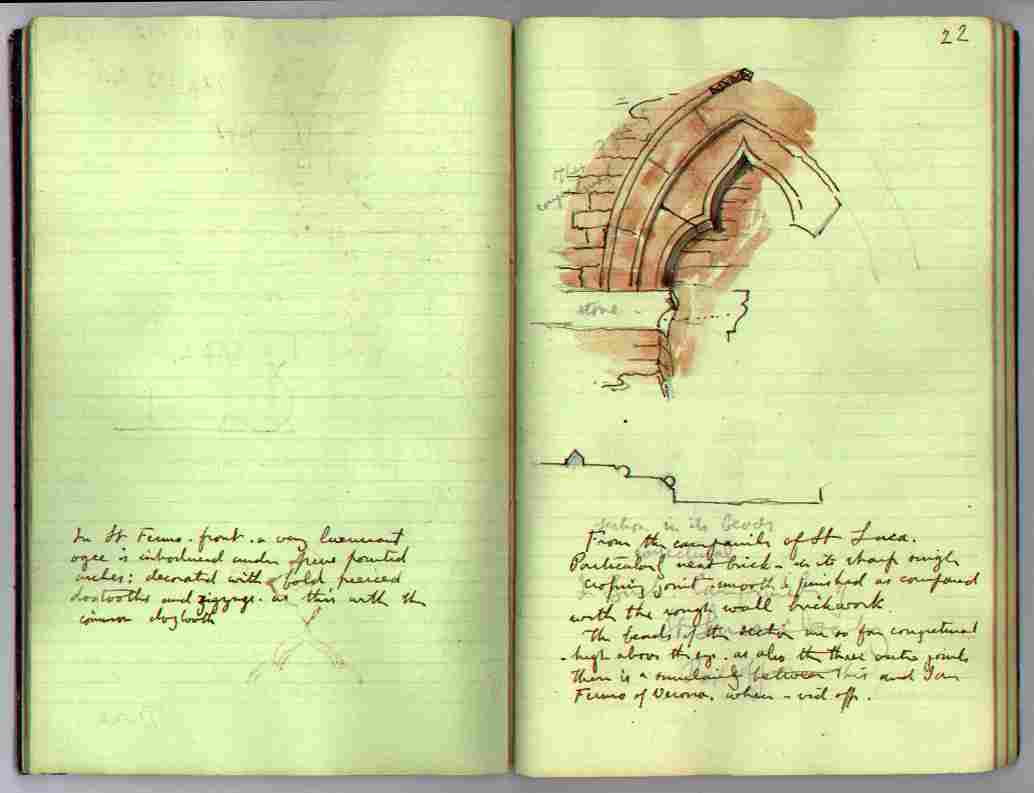 In St Fermo - front - a very luxuriant
ogee is introduced under pure pointed
arches: decorated with bold pierced
dogtooths and zigzags. as this with the
common dogtooth
22
stone -
section in its beads
conjectural
From the campanile of St Luca.
Particularly neat brick - in its sharp
joint smooth & finished as compared
with the rough wall brickwork.
The beads of the section are so far conjectural
- high above the eye. as also the three outer joints
there is a similarity between this and San
Fermo of Verona. when - vid opp.